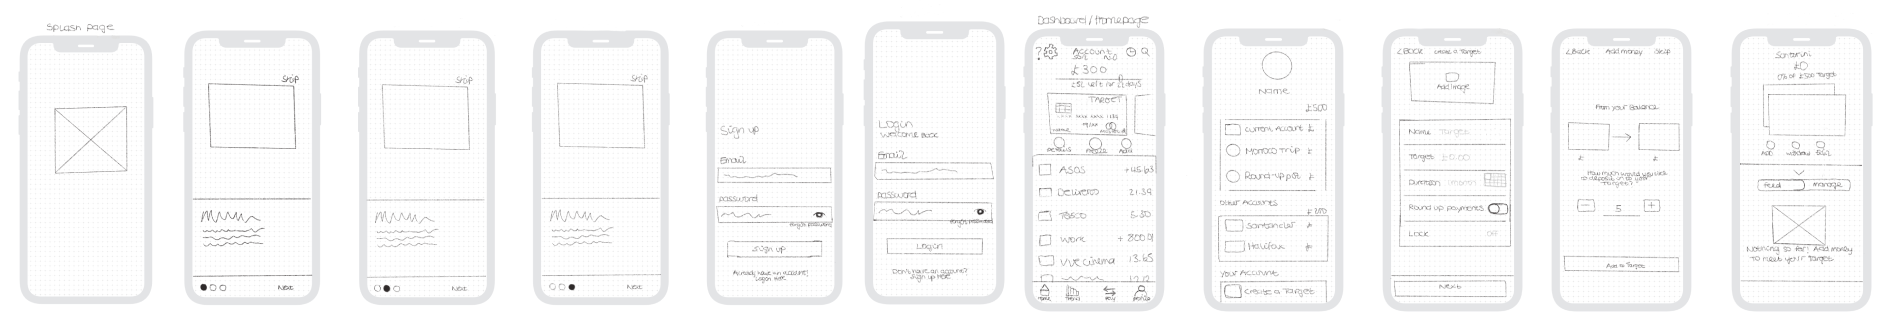 Splash page
Skip
Next
Skip
Next
Skip
Next
Sign up
Email
password
forgot password
Sign up
Already have an account?
Login Here
Login
Welcome Back
Email
password
forgot password
Login
Don't have an account?
Sign up Here
Dashboard / Homepage
?
Account
£300
TARGET
ASOS +45.63
Deliveroo 21.39
Tesco 5.30
Work
Vue cinema 13.65
12.12
Home
Pay
Profile
Name
£500
Current Account £
Morocco Trip £
Round-up pot £
Other Accounts
£200
Santander £
Halifax £
Your Account
Create a Target
<Back Create a Target
Add Image
Name Target
Target £0.00
Duration 1 month
Round up payments
Lock OFF
Next
<Back Add money Skip
From your Balance
£ £
How much would you like
to deposit into your
Target?
- 5 +
Add to Target
Santorini
£0
0% of £500 Target
Add
Feed Manage
Nothing so far! Add money
to meet your Target